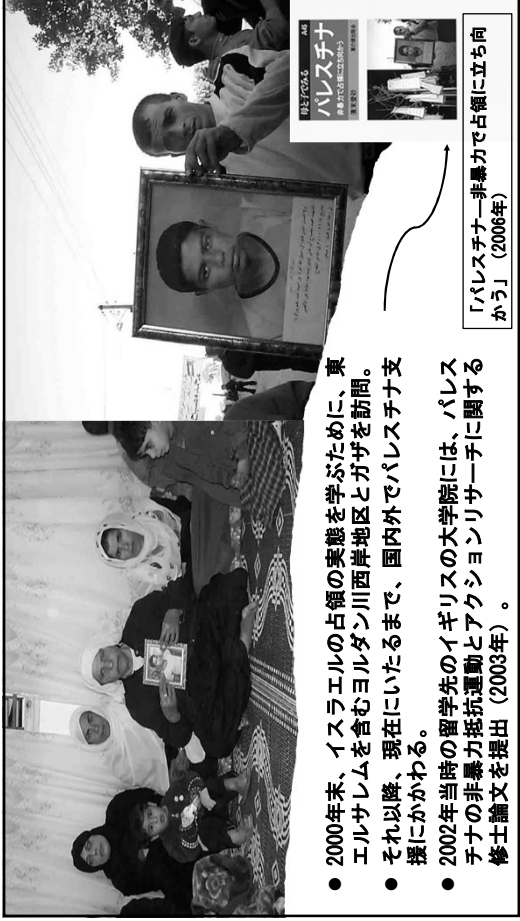 ● 2000年末、イスラエルの占領の実態を学ぶために、東
エルサレムを含むヨルダン川西岸地区とガザを訪問。
● それ以降、現在にいたるまで、国内外でパレスチナ支
援にかかわる。
● 2002年当時の留学先のイギリスの大学院には、パレス
チナの非暴力抵抗運動とアクションリサーチに関する
修士論文を提出（2003年）。
母と子でみる A45
パレスチナ
非暴力で占領に立ち向かう
清末愛砂
「パレスチナ―非暴力で占領に立ち向
かう」（2006年）